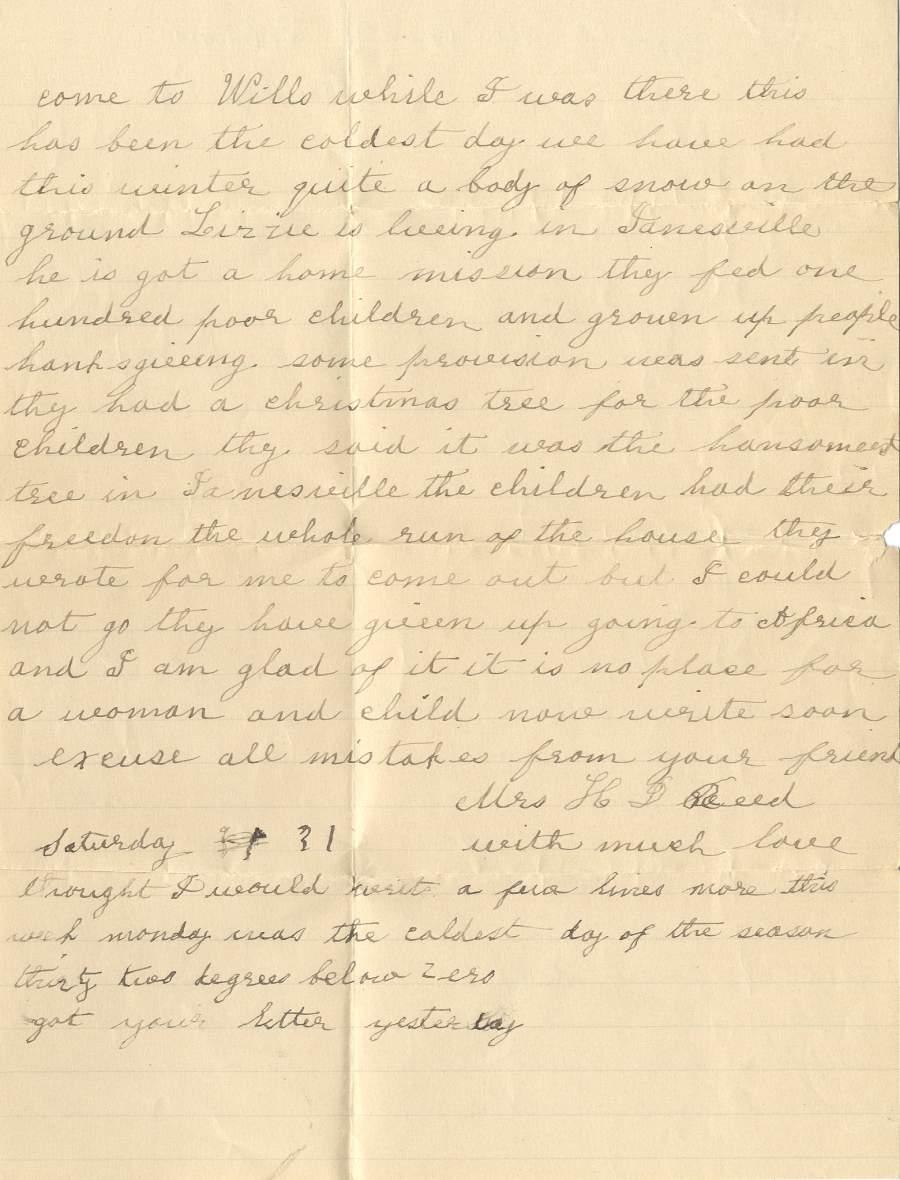 come to Wills while I was there this
has been the coldest day we have had
this winter quite a body of snow on the
ground Lizzie is liveing in Janesville
he is got a home mission they fed one
hundred poor children and grown up people
hanksgiveing some provision was sent in
they had a christmas tree for the poor
children they said it was the hansomest
tree in Janesville the children had their
freedon the whole run of the house they
wrote for me to come out but I could
not go they have given up going to Africa
and I am glad of it it is no place for
a woman and child now write soon
excuse all mistakes from your friend
Mrs H J Reed
Saturday 31 with much love
thought I would write a few lines more this
week monday was the coldest day of the season
thirty two degrees below zero
got your letter yesterday